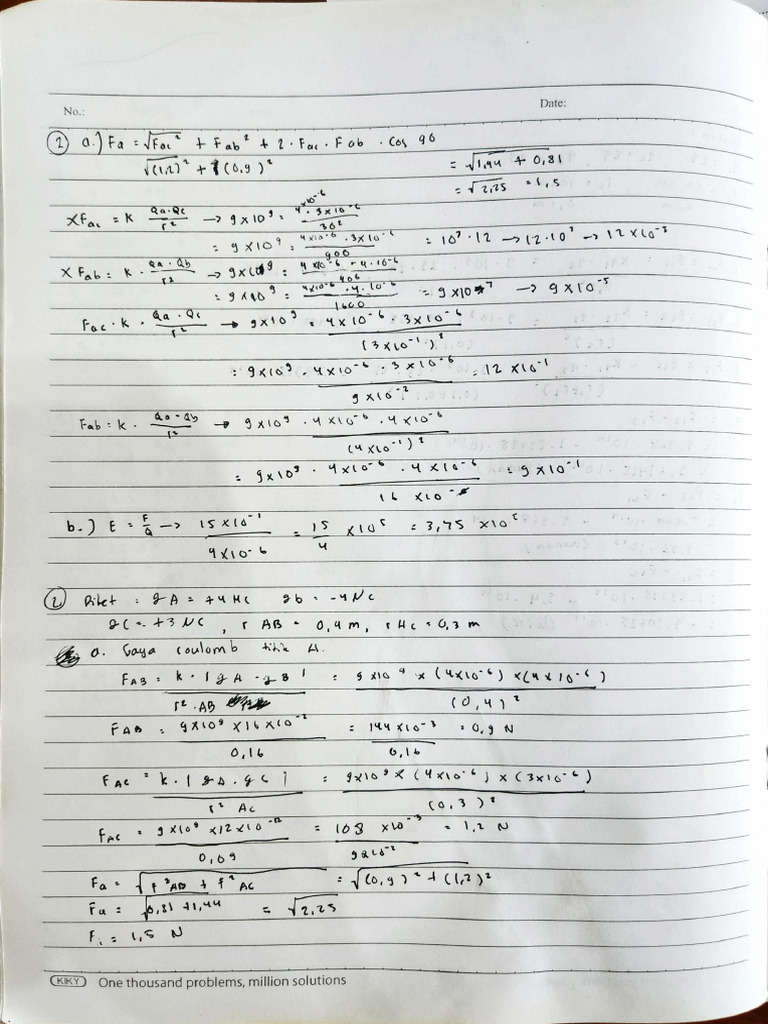 No.: Date:
② a.) Fa = √Fac² + Fab² + 2 · Fac · Fab · cos 90
√(1,2)² + (0,9)² = √1,44 + 0,81
= √2,25 = 1,5
x Fac = k Qa.Qc/r² → 9x10⁹ = 4x10⁻⁶ · 3x10⁻⁶/30²
= 9x10⁹ = 4x10⁻⁶ · 3x10⁻⁶/900 = 10³ · 12 → 12·10³ → 12x10⁻⁵
x Fab = k · Qa · Qb/r² → 9x10⁹ = 4x10⁻⁶ · 4·10⁻⁶/400
= 9x10⁹ = 4x10⁻⁶ · 4·10⁻⁶/1600 = 9x10⁻⁷ → 9x10⁻⁵
Fac · k · Qa · Qc/r² → 9x10⁹ = 4x10⁻⁶ · 3x10⁻⁶/(3x10⁻¹)²
= 9x10⁹ · 4x10⁻⁶ · 3x10⁻⁶/9x10⁻² = 12x10⁻¹
Fab = k · Qa · Qb/r² → 9x10⁹ · 4x10⁻⁶ · 4x10⁻⁶/(4x10⁻¹)²
= 9x10⁹ · 4x10⁻⁶ · 4x10⁻⁶/16x10⁻² = 9x10⁻¹
b.) E = F/Q → 15x10⁻¹/4x10⁻⁶ = 15/4 x10⁵ = 3,75 x10⁵
② Diket : qA = +4Mc qb = -4Nc
qC = +3NC , r AB = 0,4m, r Ac = 0,3 m
a. Gaya coulomb titik A.
FAB = k · |qA · qB|/r² · AB = 9x10⁹ x (4x10⁻⁶) x (4x10⁻⁶)/(0,4)²
FAB = 9x10⁹ x 16x10⁻²/0,16 = 144x10⁻³/0,16 = 0,9 N
FAC = k · |qA · qC|/r² AC = 9x10⁹ x (4x10⁻⁶) x (3x10⁻⁶)/(0,3)²
FAC = 9x10⁹ x12x10⁻¹²/0,09 = 108 x10⁻³/9x10⁻² = 1,2 N
Fa = √F²AB + F²AC = √(0,9)² + (1,2)²
Fa = √0,81 + 1,44 = √2,25
Fi = 1,5 N
KIKY One thousand problems, million solutions